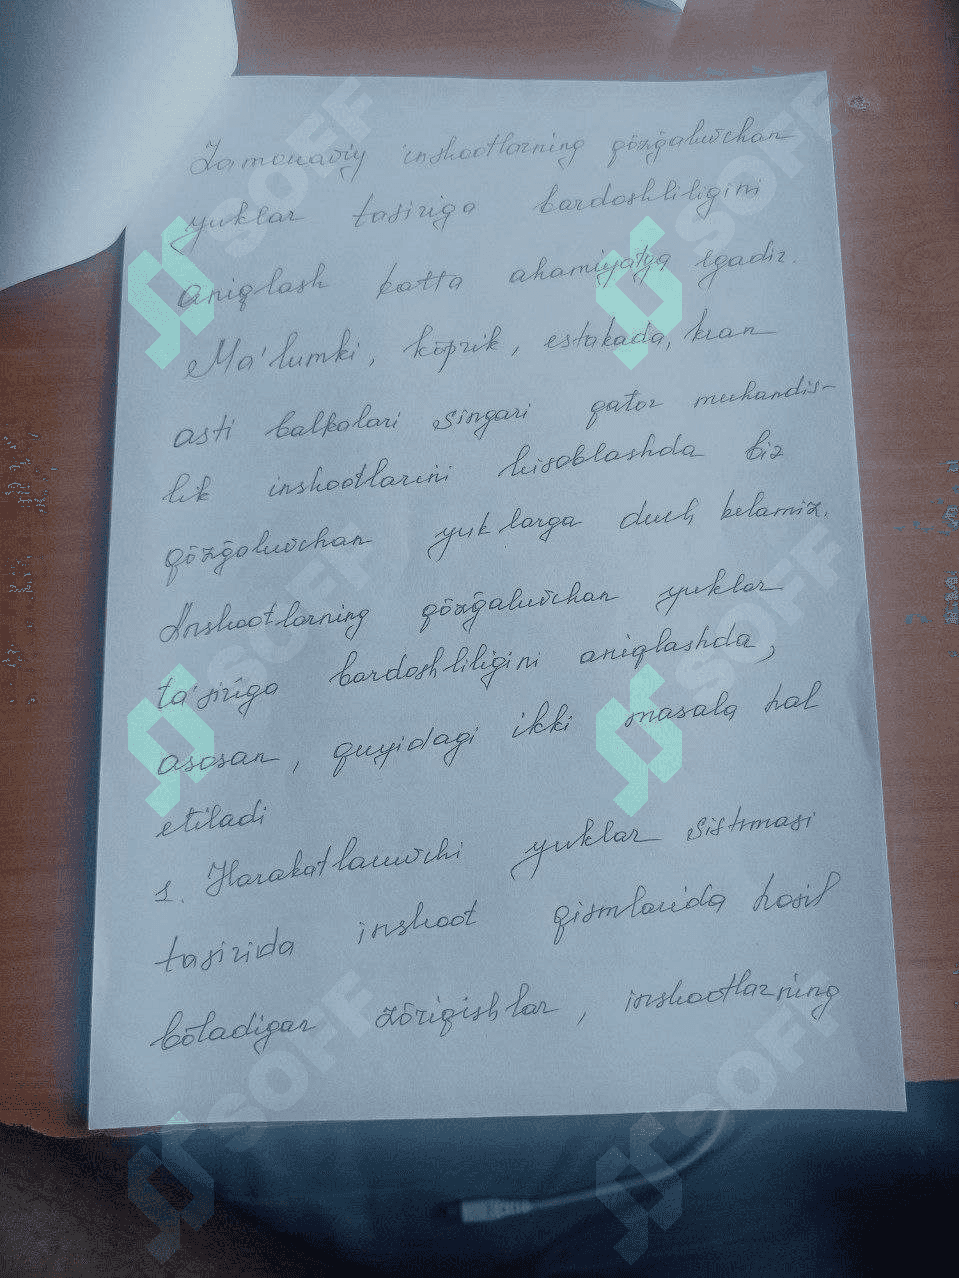 Zamonaviy inshootlarning qōzğaluvchan
yuklar tasiriga bardoshliligini
aniqlash katta ahamiyatga egadir.
Ma'lumki, kōprik, estakada, kran
asti balkalari singari qator muhandis-
lik inshootlarini hisoblashda biz
qōzğaluvchan yuklarga duch kelamiz.
Inshootlarning qōzğaluvchan yuklar
ta'siriga bardoshliligini aniqlashda,
asosan, quyidagi ikki masala hal
etiladi
1. Harakatlanuvchi yuklar sistemasi
tasirida inshoot qismlarida hosil
bōladigan zōriqishlar, inshootlarning
SOFF
SOFF
SOFF
SOFF
SOFF
SOFF